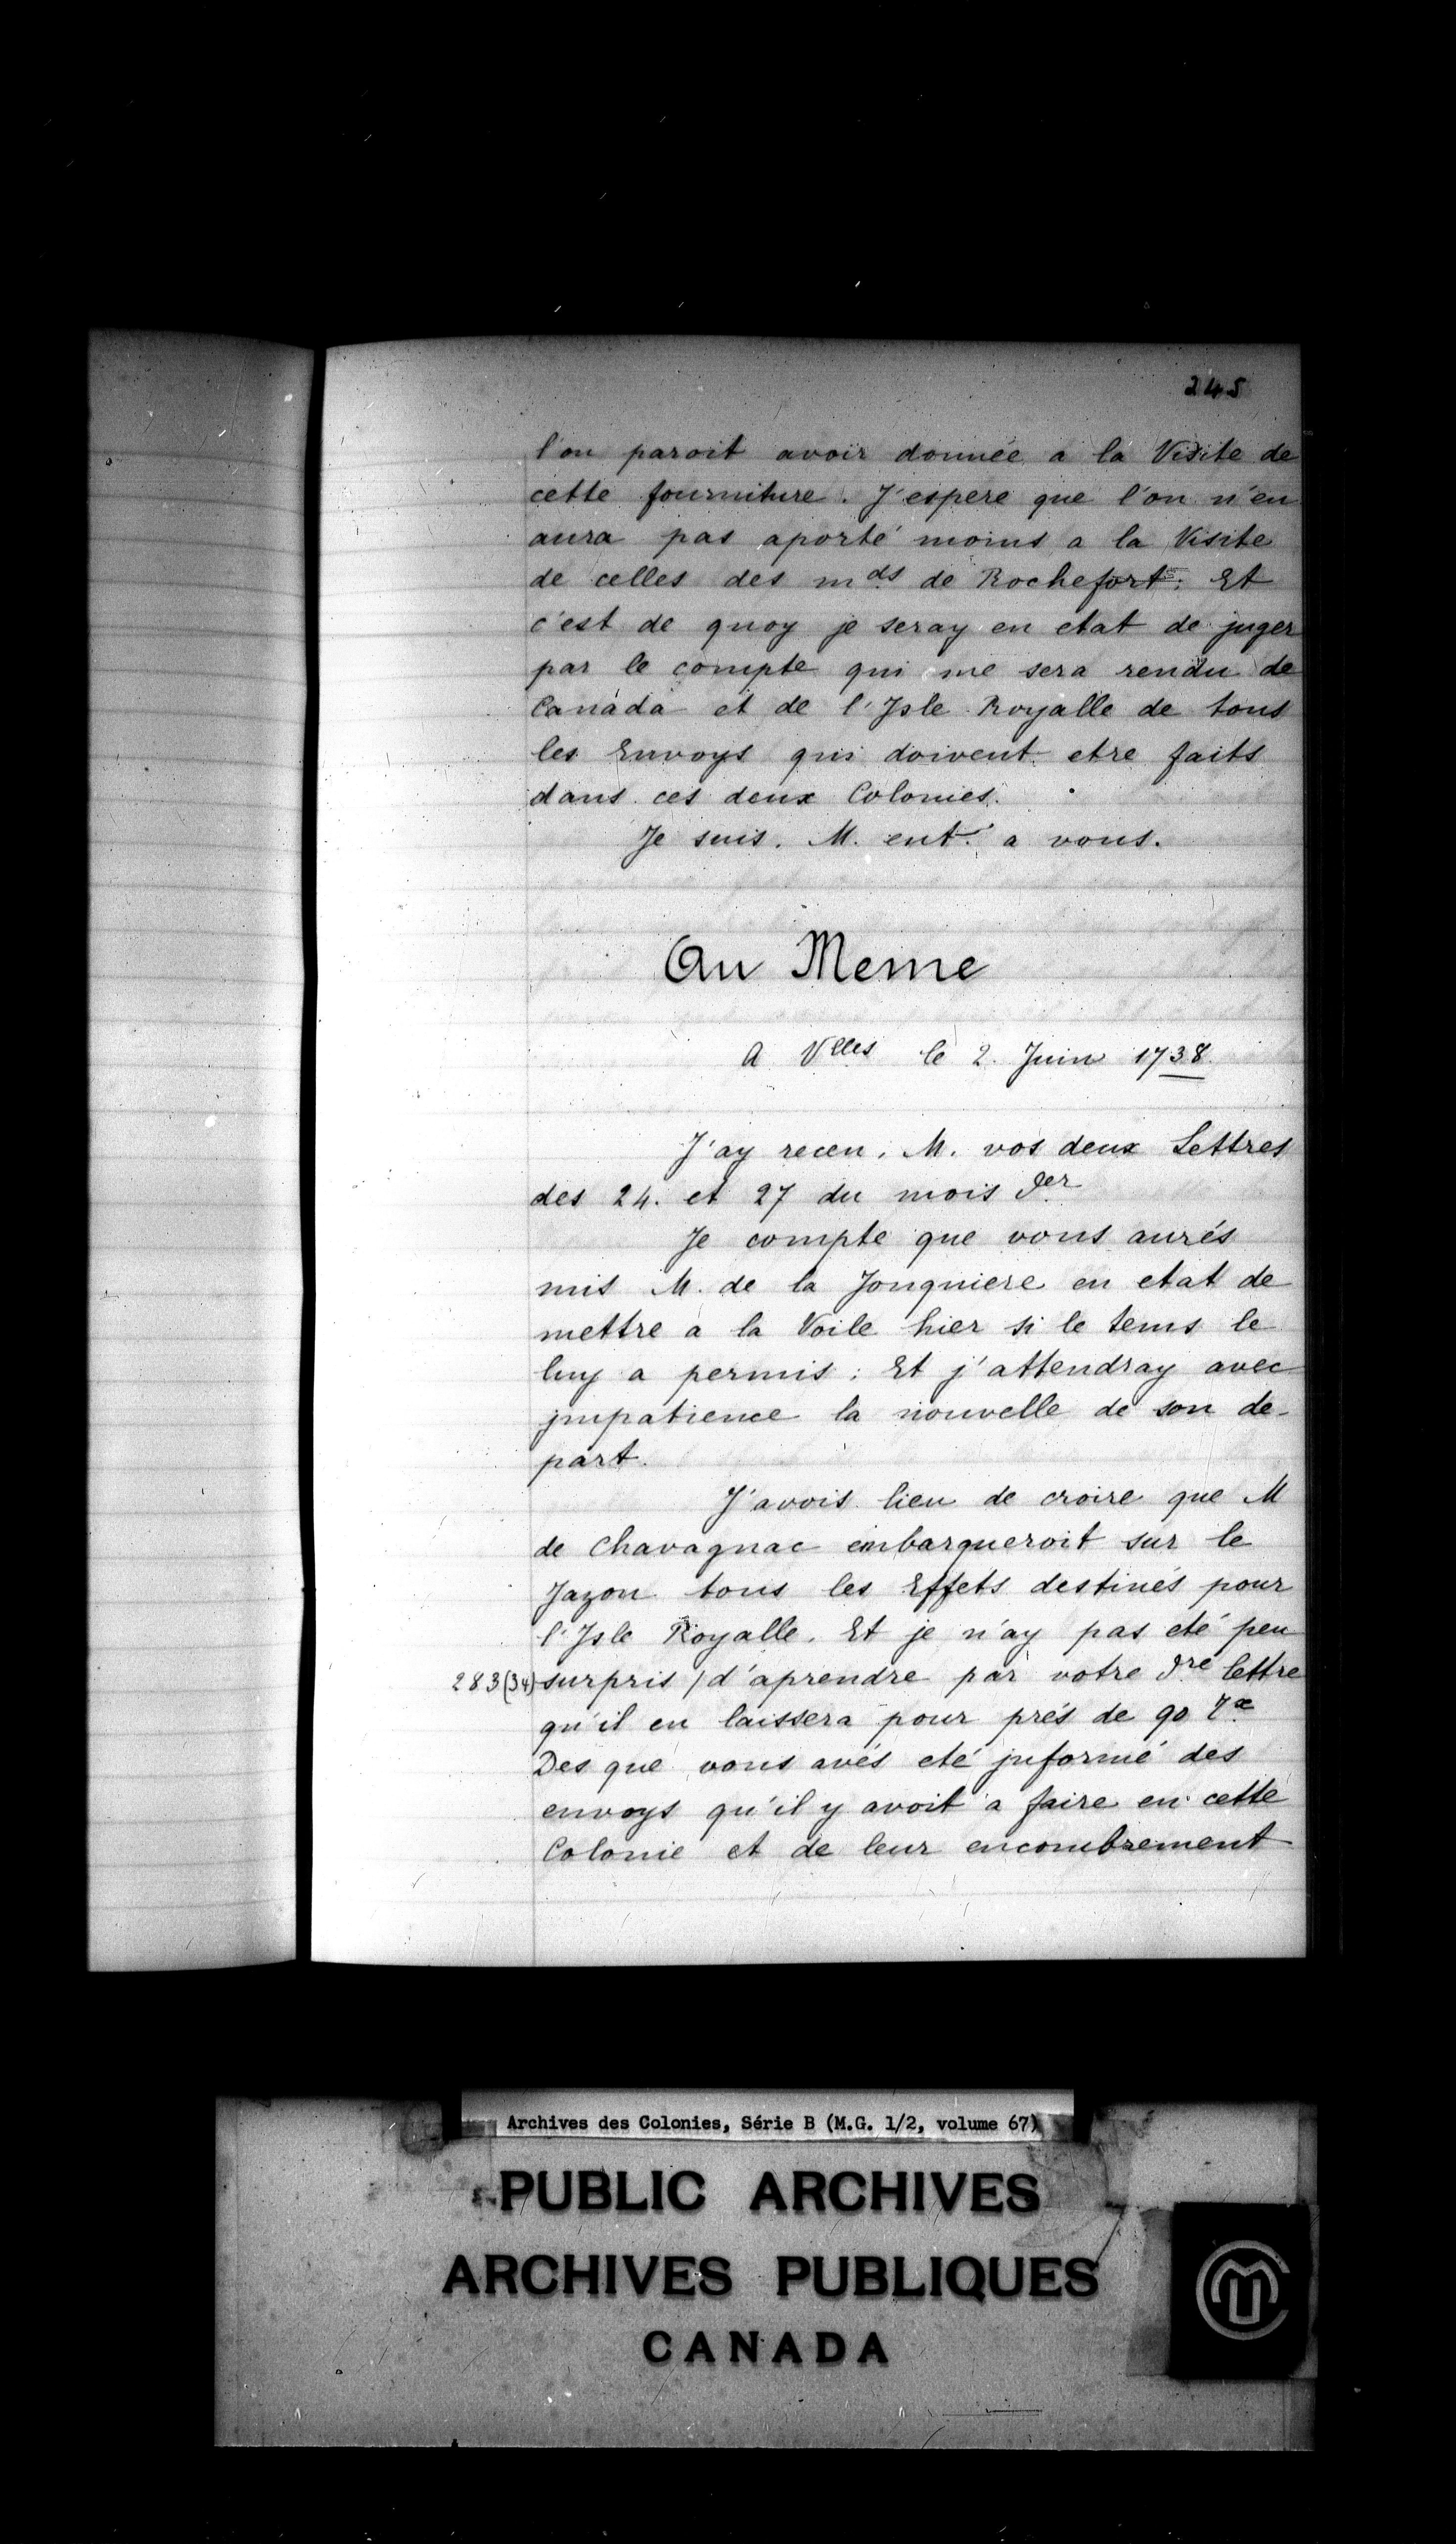 245
l'on paroit avoir donnée a la Visite de
cette fourniture. J'espere que l'on n'en
aura pas aporté moins a la Visite
de celles des mds de Rochefort: Et
c'est de quoy je seray en etat de juger
par le compte qui me sera rendu de
Canada et de l'Jsle Royalle de tous
les Envoys qui doivent etre faits
dans ces deux Colonies.
Je suis. M. ent. a vous.
Au Meme
A Vlles le 2. Juin 1738.
J'ay receu. M. vos deux Lettres
des 24. et 27 du mois der
Je compte que vous aurés
mis M. de la Jonquiere en etat de
mettre a la Voile hier si le tems le
luy a permis: Et j'attendray avec
jmpatience la nouvelle de son de-
part.
J'avois lieu de croire que M
de Chavagnac embarqueroit sur le
Jazon tous les Effets destinés pour
l'Jsle Royalle. Et je n'ay pas eté peu
283(34) surpris / d'aprendre par votre dre lettre
qu'il en laissera pour prés de 90 Tx
Des que vous avés eté jnformé des
envoys qu'il y avoit a faire en cette
Colonie et de leur encombrement
Archives des Colonies, Série B (M.G. 1/2, volume 67)
PUBLIC ARCHIVES
ARCHIVES PUBLIQUES
CANADA